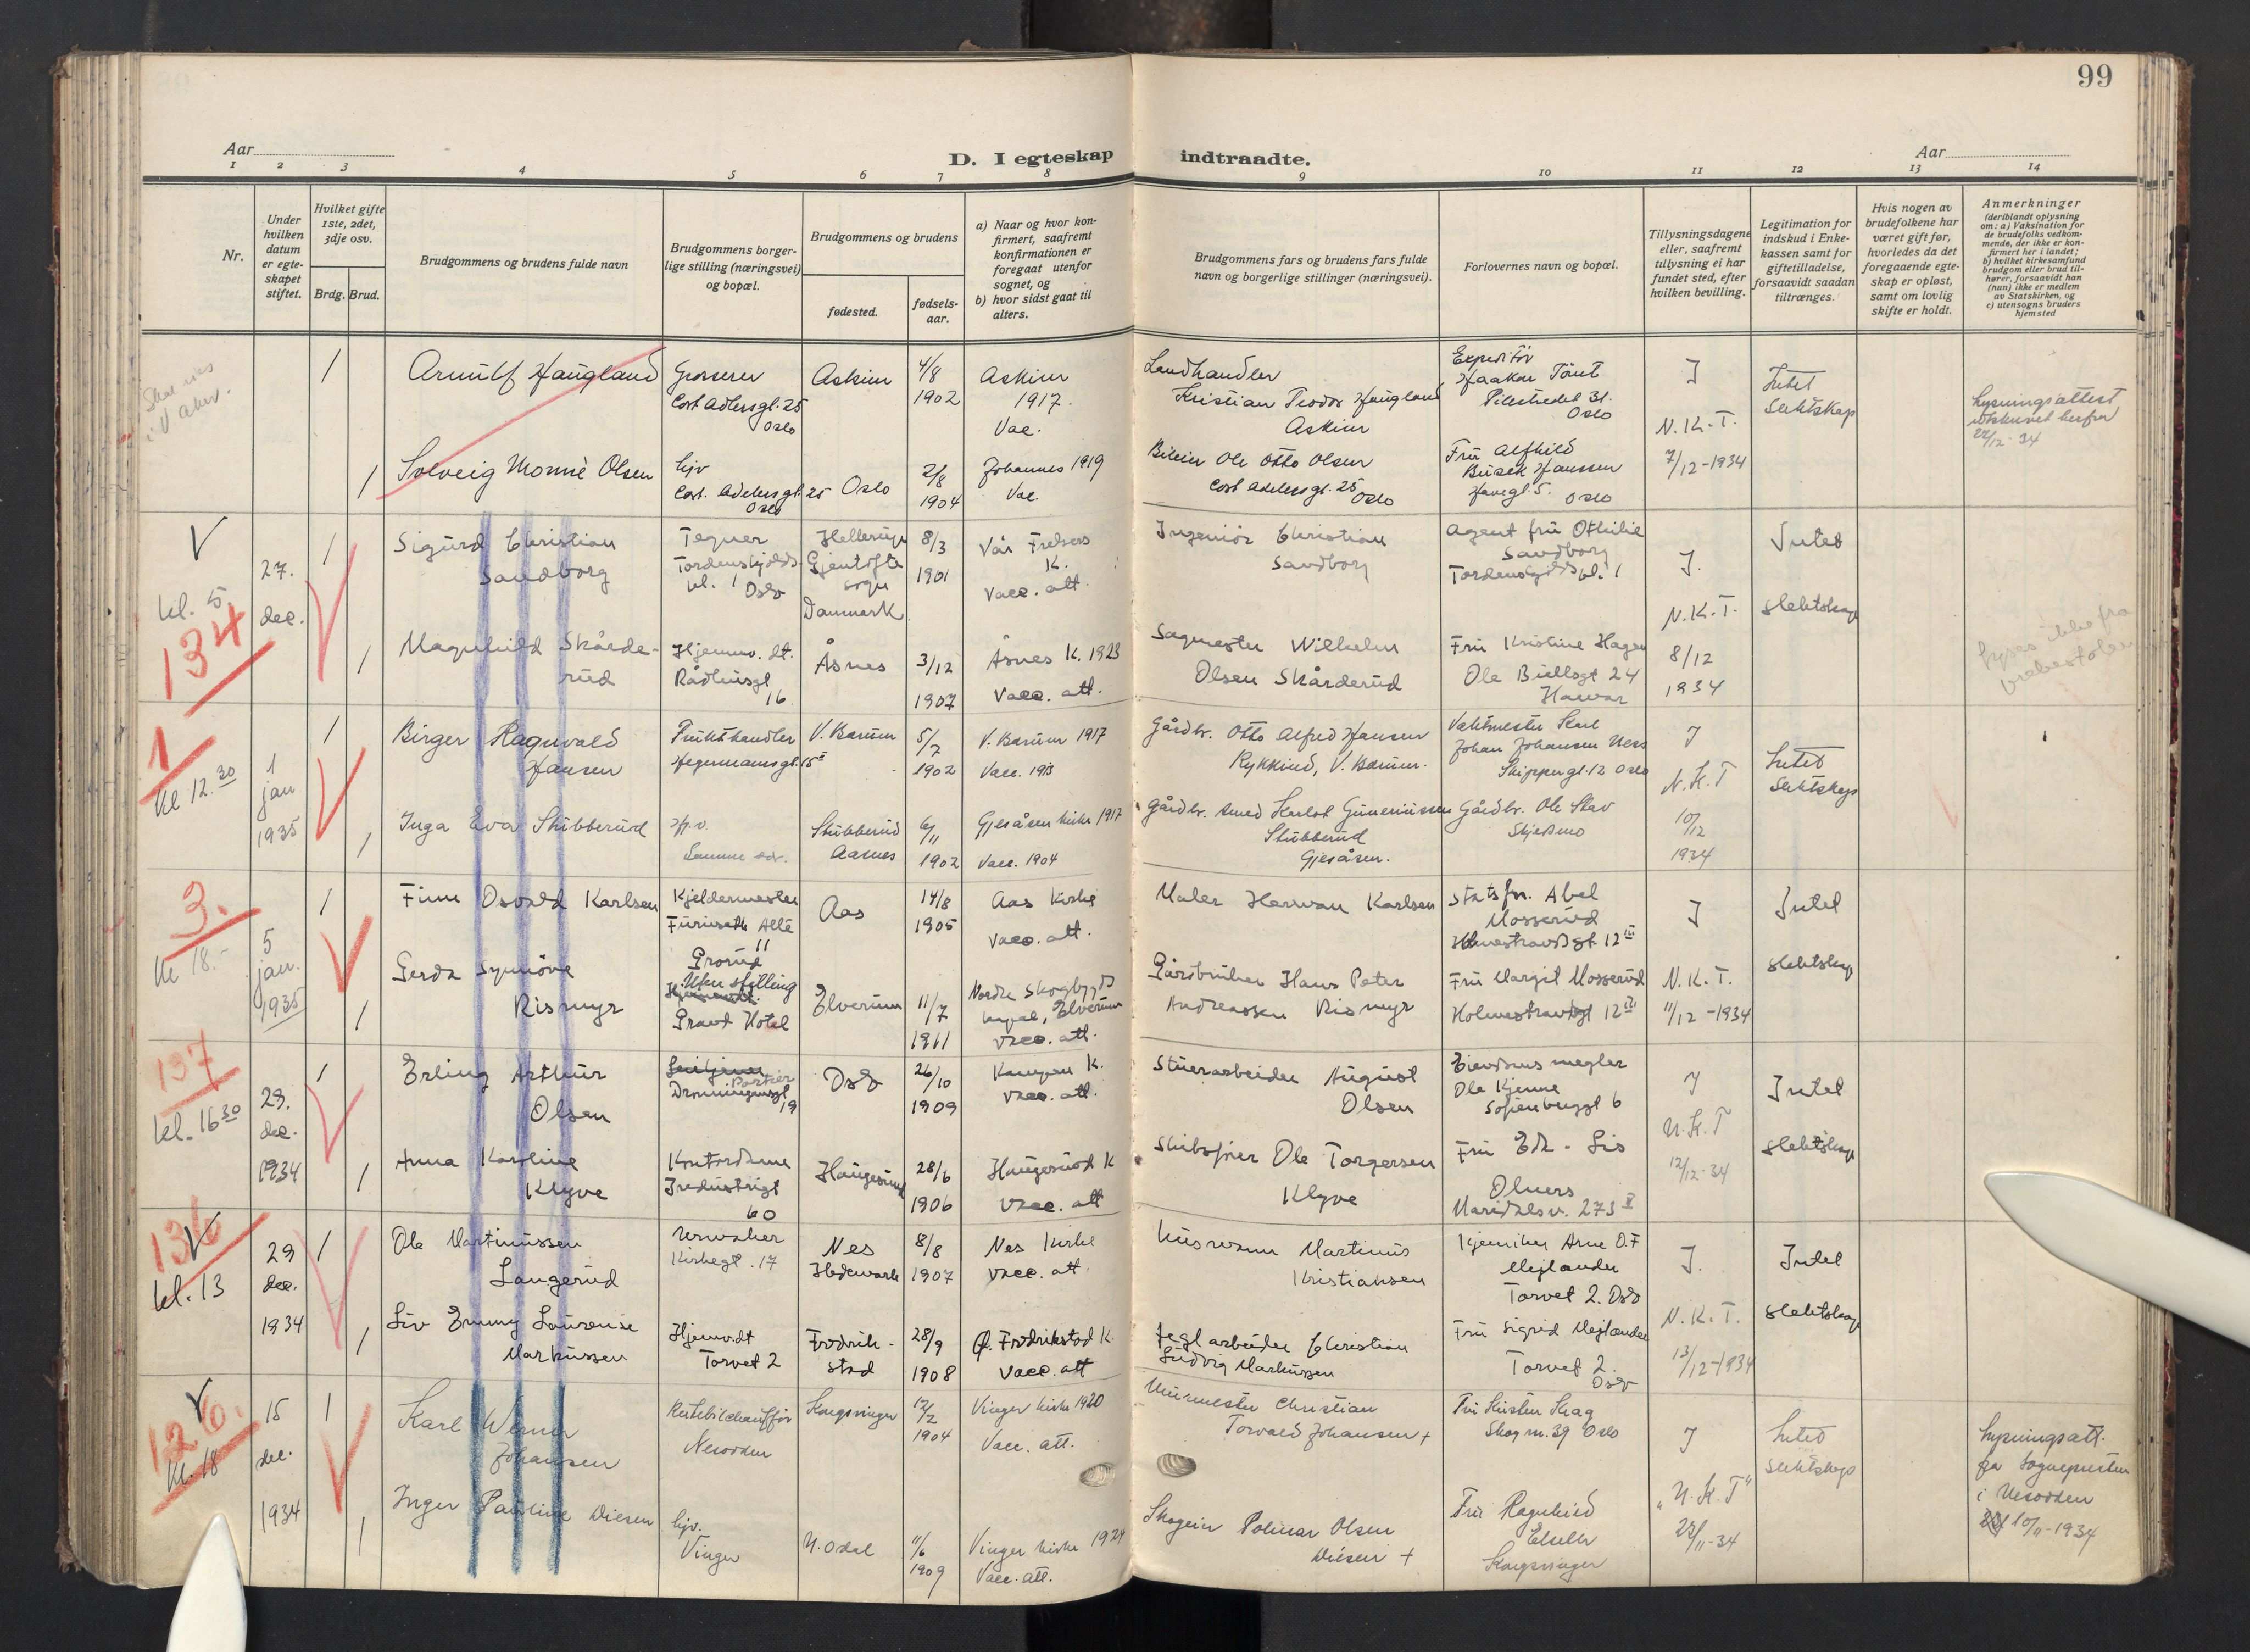 99
Aar
Aar
D. I egteskap indtraadte.
1 2 3 4 5 6 7 8 9 10 11 12 13 14
Nr.
Under hvilken datum er egte-skapet stiftet.
Hvilket gifte 1ste, 2det, 3dje osv.
Brdg. Brud.
Brudgommens og brudens fulde navn
Brudgommens borger-lige stilling (næringsvei) og bopæl.
Brudgommens og brudens
fødested.
fødsels-aar.
a) Naar og hvor kon-firmert, saafremt konfirmationen er foregaat utenfor sognet, og
b) hvor sidst gaat til alters.
Brudgommens fars og brudens fars fulde navn og borgerlige stillinger (næringsvei).
Forlovernes navn og bopæl.
Tillysningsdagene eller, saafremt tillysning ei har fundet sted, efter hvilken bevilling.
Legitimation for indskud i Enke-kassen samt for giftetilladelse, forsaavidt saadan tiltrænges.
Hvis nogen av brudefolkene har været gift før, hvorledes da det foregaaende egte-skap er opløst, samt om lovlig skifte er holdt.
Anmerkninger
(deriblandt oplysning om: a) Vaksination for de brudefolks vedkom-mende, der ikke er kon-firmert her i landet;
b) hvilket kirkesamfund brudgom eller brud til-hører, forsaavidt han (hun) ikke er medlem av Statskirken, og
c) utensogns bruders hjemsted
1
Arnulf Haugland
Grosserer
Cort Adlersgt. 25
Oslo
Askim
4/8
1902
Askim
1917.
Vac.
Landhandler
Kristian Teodor Haugland
Askim
Expeditør
Haakon
Pilestredet 31.
Oslo
J
N.K.T.
7/12-1934
Intet
Slektskap
Lysningsattest
utskrevet herfra
22/12-34
1
Solveig Monné Olsen
hjv
Cort. Adelersgt. 25
Oslo
Oslo
2/8
1904
Johannes 1919
Vac.
Ole Otto Olsen
Cort Adelersgt. 25
Oslo
Fru Alfhild
Busch Hanssen
Havegt. 5. Oslo
V
kl. 5
134
27.
dec.
1
Sigurd Christian
Sandborg
Tegner
Tordenskjolds-
pl. 1 Oslo
Hellerup
Gjentofte
sogn
Danmark
8/3
1901
Vår Frelsers
K.
Vacc. att.
Ingeniör Christian
Sandborg
Agent fru Othilie
Sandborg
Tordenskjolds pl. 1
J.
N.K.T.
8/12
1934
Intet
slektskap
lyses ikke fra
prekestolen
1
Magnhild Skårde-
rud
Hjemmv. dt.
Rådhusgt
16
Åsnes
3/12
1907
Åsnes K. 1923
Vacc. att.
Sagmester Wilhelm
Olsen Skårderud
Fru Kristine Hagen
Ole Bullsgt 24
Hamar
1
Kl 12.30
1
jan
1935
1
Birger Ragnvald
Hansen
Frukthandler
Hegermannsgt. 15
V. Bærum
5/7
1902
V. Bærum 1917
Vacc. 1913
Gårdbr. Otto Alfred Hansen
Rykkind, V. Bærum.
Vaktmester Karl
Johan Johansen Ness
Skippergt. 12 Oslo
J
N.K.T
10/12
1934
Intet
Slektskap
1
Inga Eva Stubberud
Hj.v.
Samme adr.
Stubberud
Aasnes
6/11
1902
Gjesåsen kirke 1917
Vacc. 1904
Stubberud
Gjesåsen.
Gårdbr. Ole Stav
3.
Kl 18.-
5
jan.
1935
1
Finn Osvald Karlsen
Kjeldermester
Furuseth Allé
11
Grorud
Aas
14/8
1905
Aas Kirke
Vacc. att.
Maler Herman Karlsen
Abel
Mosserud
Holmestrandsgt. 12 III
J
N.K.T.
11/12-1934
Intet
slektskap
1
Gerda Synnöve
Rismyr
Uten stilling
Grand Hotel
Elverum
11/7
1911
Nordre Skogbygd
kapel, Elverum
Vacc. att.
Gårdbruker Hans Peter
Andreassen Rismyr
Fru Margit Mosserud
Holmestrandsgt 12 III
137
kl. 16 30
29.
dec.
1934
1
Erling Arthur
Olsen
Portier
Dronningensgt
19
Oslo
26/10
1909
Kampen K.
Vacc. att.
Stuerarbeider August
Olsen
Eiendomsmegler
Ole Kjenne
Sofienberggt 6
J
N.K.T
12/12-34
Intet
slektskap
1
Anna Karoline
Klyve
Kontordame
Industrigt
60
Haugesund
28/6
1906
Haugesund K
Vacc. att
Skibsfører Ole Torgersen
Klyve
Fru Edt - Lis
Maridalsv. 273 V
136
V
kl. 13
29
dec.
1934
1
Ole Martinussen
Langerud
Urmaker
Kirkegt. 17
Nes
Hedemark
8/8
1907
Nes Kirke
Vacc. att
Husmann Martinus
Kristiansen
Kjemiker Arne O.F
Mejlænder
Torvet 2. Oslo
J.
N.K.T.
13/12-1934
Intet
slektskap
1
Liv Emmy Lourense
Markussen
Hjemv.dt
Torvet 2
Fredrik-
stad
28/9
1908
Ø. Fredrikstad K.
Vacc. att
Teglarbeider Christian
Ludvig Markussen
Fru Sigrid Mejlænder
Torvet 2.
Oslo
V
126.
Kl. 18
15
des.
1934
1
Karl Werner
Johansen
Rutebilchauffør
Nesodden
Kongsvinger
12/2
1904
Vinger kirke 1920
Vacc. att.
Murmester Christian
Torvald Johansen +
Fru Kirsten Skag
39 Oslo
J
"N.K.T"
22/11-34
Intet
Slektskap
Lysningsatt.
fra Sogneprester
i Nesodden
10/11-1934
1
Inger Pauline Diesen
hjv.
Vinger
N. Odal
11/6
1909
Vinger kirke 1924
Vacc. att.
Polmar Olsen
Diesen +
Fru Ragnhild
Kongsvinger